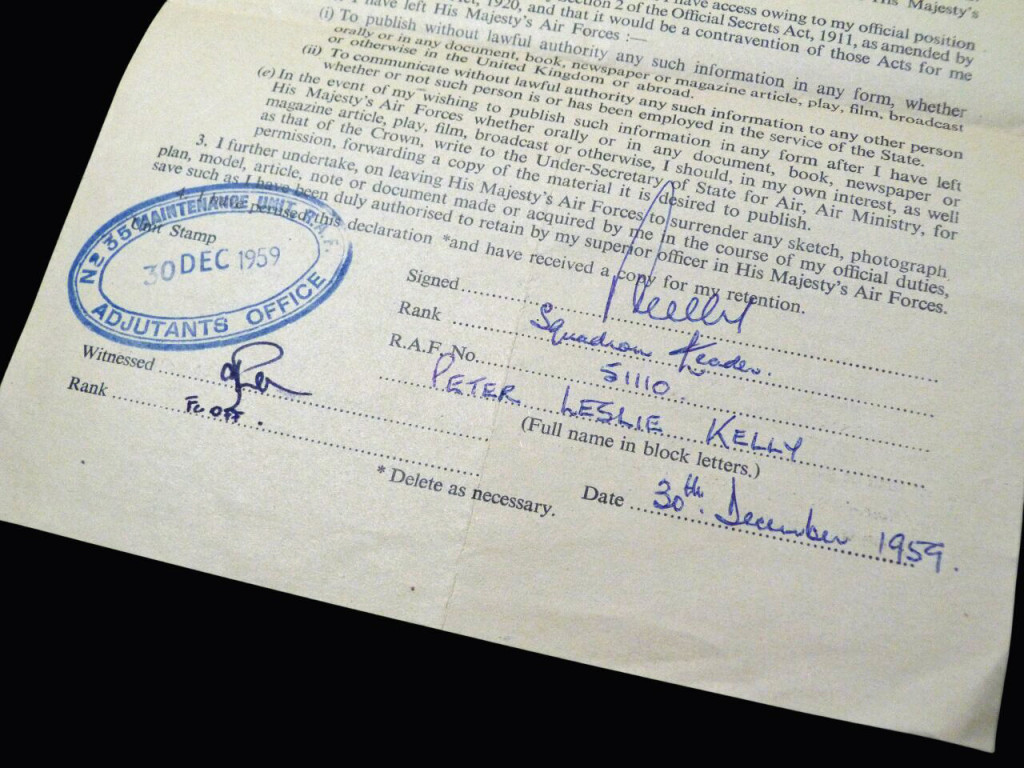 His Majesty's
have access owing to my official position
, 1920, and that it would be a contravention of those Acts for me
Section 2 of the Official Secrets Act, 1911, as amended by
I have left His Majesty's Air Forces :—
(i) To publish without lawful authority any such information in any form, whether
orally or in any document, book, newspaper or magazine article, play, film, broadcast
or otherwise in the United Kingdom or abroad.
(ii) To communicate without lawful authority any such information to any other person
whether or not such person is or has been employed in the service of the State.
(e) In the event of my wishing to publish such information in any form after I have left
His Majesty's Air Forces whether orally or in any document, book, newspaper or
magazine article, play, film, broadcast or otherwise, I should, in my own interest, as well
as that of the Crown, write to the Under-Secretary of State for Air, Air Ministry, for
permission, forwarding a copy of the material it is desired to publish.
3. I further undertake, on leaving His Majesty's Air Forces to surrender any sketch, photograph
plan, model, article, note or document made or acquired by me in the course of my official duties,
save such as I have been duly authorised to retain by my superior officer in His Majesty's Air Forces.
4. I have perused this declaration *and have received a copy for my retention.
Unit Stamp
Nº 35 MAINTENANCE UNIT R.A.F.
30 DEC 1959
ADJUTANTS OFFICE
Signed
Rank Squadron Leader.
R.A.F. No. 51110.
PETER LESLIE KELLY
(Full name in block letters.)
Witnessed
Rank
* Delete as necessary.
Date 30th. December 1959.